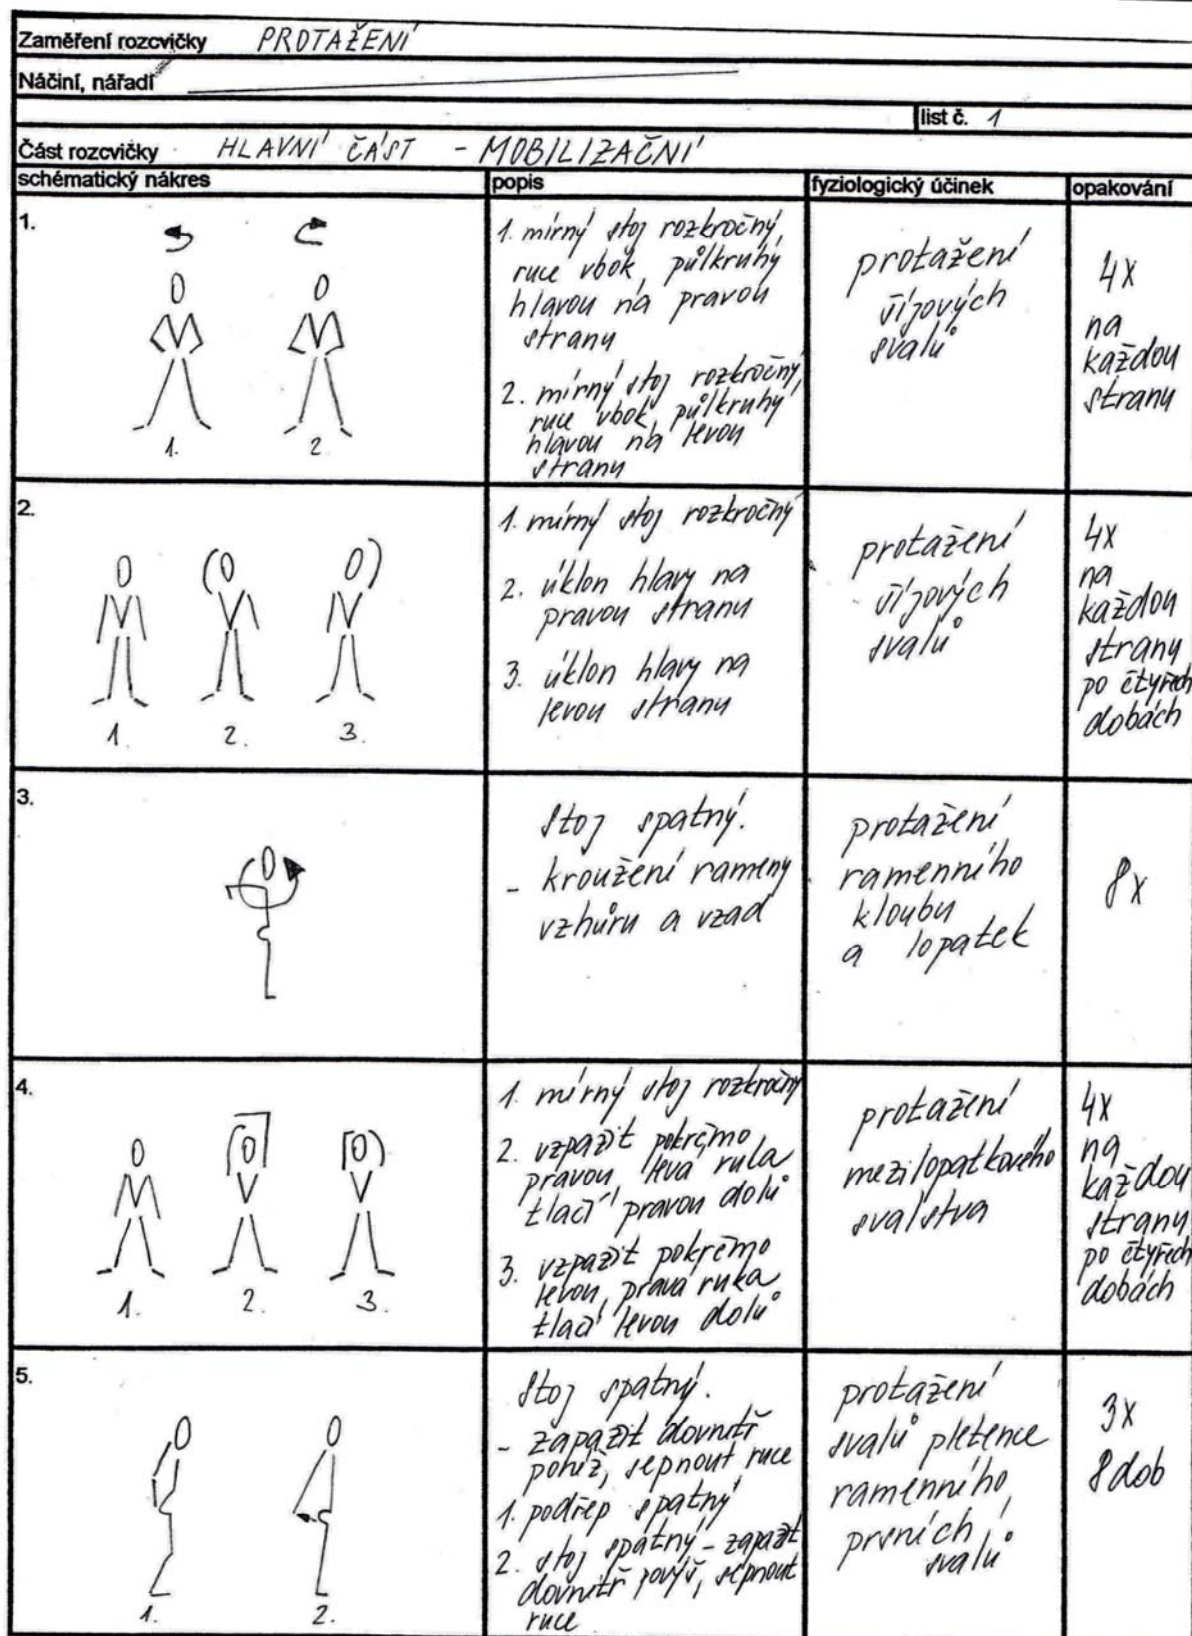 Zaměření rozcvičky PROTAŽENÍ
Náčiní, nářadí
list č. 1
Část rozcvičky HLAVNÍ ČÁST - MOBILIZAČNÍ
schématický nákres popis fyziologický účinek opakování
1.
1. mírný stoj rozkročný,
ruce vbok, půlkruhy
hlavou na pravou
stranu
2. mírný stoj rozkročný,
ruce vbok, půlkruhy
hlavou na levou
stranu
protažení
šíjových
svalů
4x
na
každou
stranu
1. 2.
2.
1. mírný stoj rozkročný
2. úklon hlavy na
pravou stranu
3. úklon hlavy na
levou stranu
protažení
šíjových
svalů
4x
na
každou
stranu
po čtyřech
dobách
1. 2. 3.
3.
Stoj spatný.
- kroužení rameny
vzhůru a vzad
protažení
ramenního
kloubu
a lopatek
8x
4.
1. mírný stoj rozkročný
2. vzpažit pokrčmo
pravou, levá ruka
tlačí pravou dolů
3. vzpažit pokrčmo
levou, pravá ruka
tlačí levou dolů
protažení
mezilopatkového
svalstva
4x
na
každou
stranu
po čtyřech
dobách
1. 2. 3.
5.
Stoj spatný.
- zapažit dovnitř
poníž, sepnout ruce
1. podřep spatný
2. stoj spatný - zapažit
dovnitř povýš, sepnout
ruce
protažení
svalů pletence
ramenního,
prsních
svalů
3x
8 dob
1. 2.